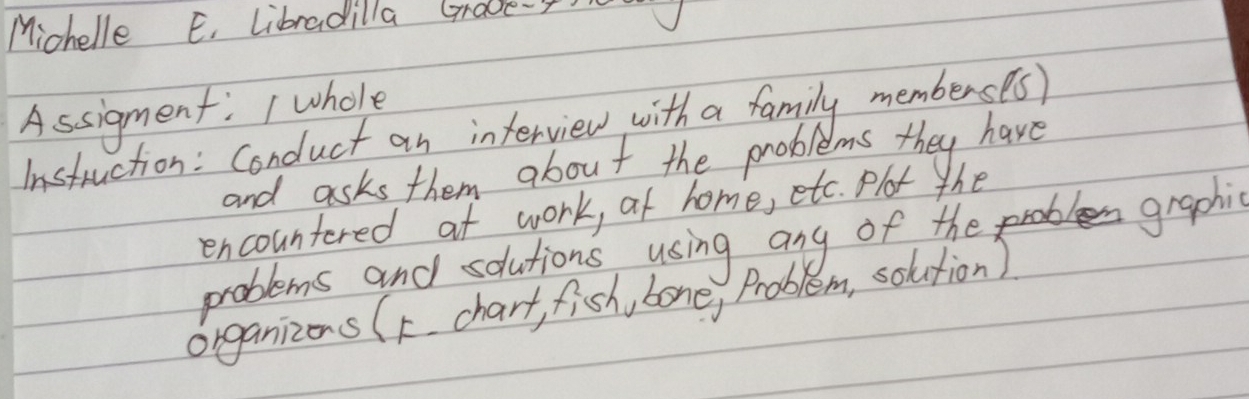 Michelle E. Libradilla Grade-7
Assigment: 1 whole
Instruction: Conduct an interview with a family members(s)
and asks them about the problems they have
encountered at work, at home, etc. Plot the
problems and solutions using any of the problem graphic
organizers (T- chart, fish, bone, Problem, solution).